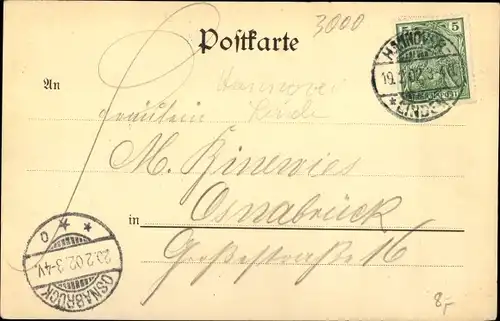 3000
Postkarte
5
HANNOVER
19.2.02.
*LINDEN
An
Hannover
Linde
Fräulein
M. Binewies
in Osnabrück
Große Straße 16
20.2.02.3-4V.
OSNABRÜCK
8,-